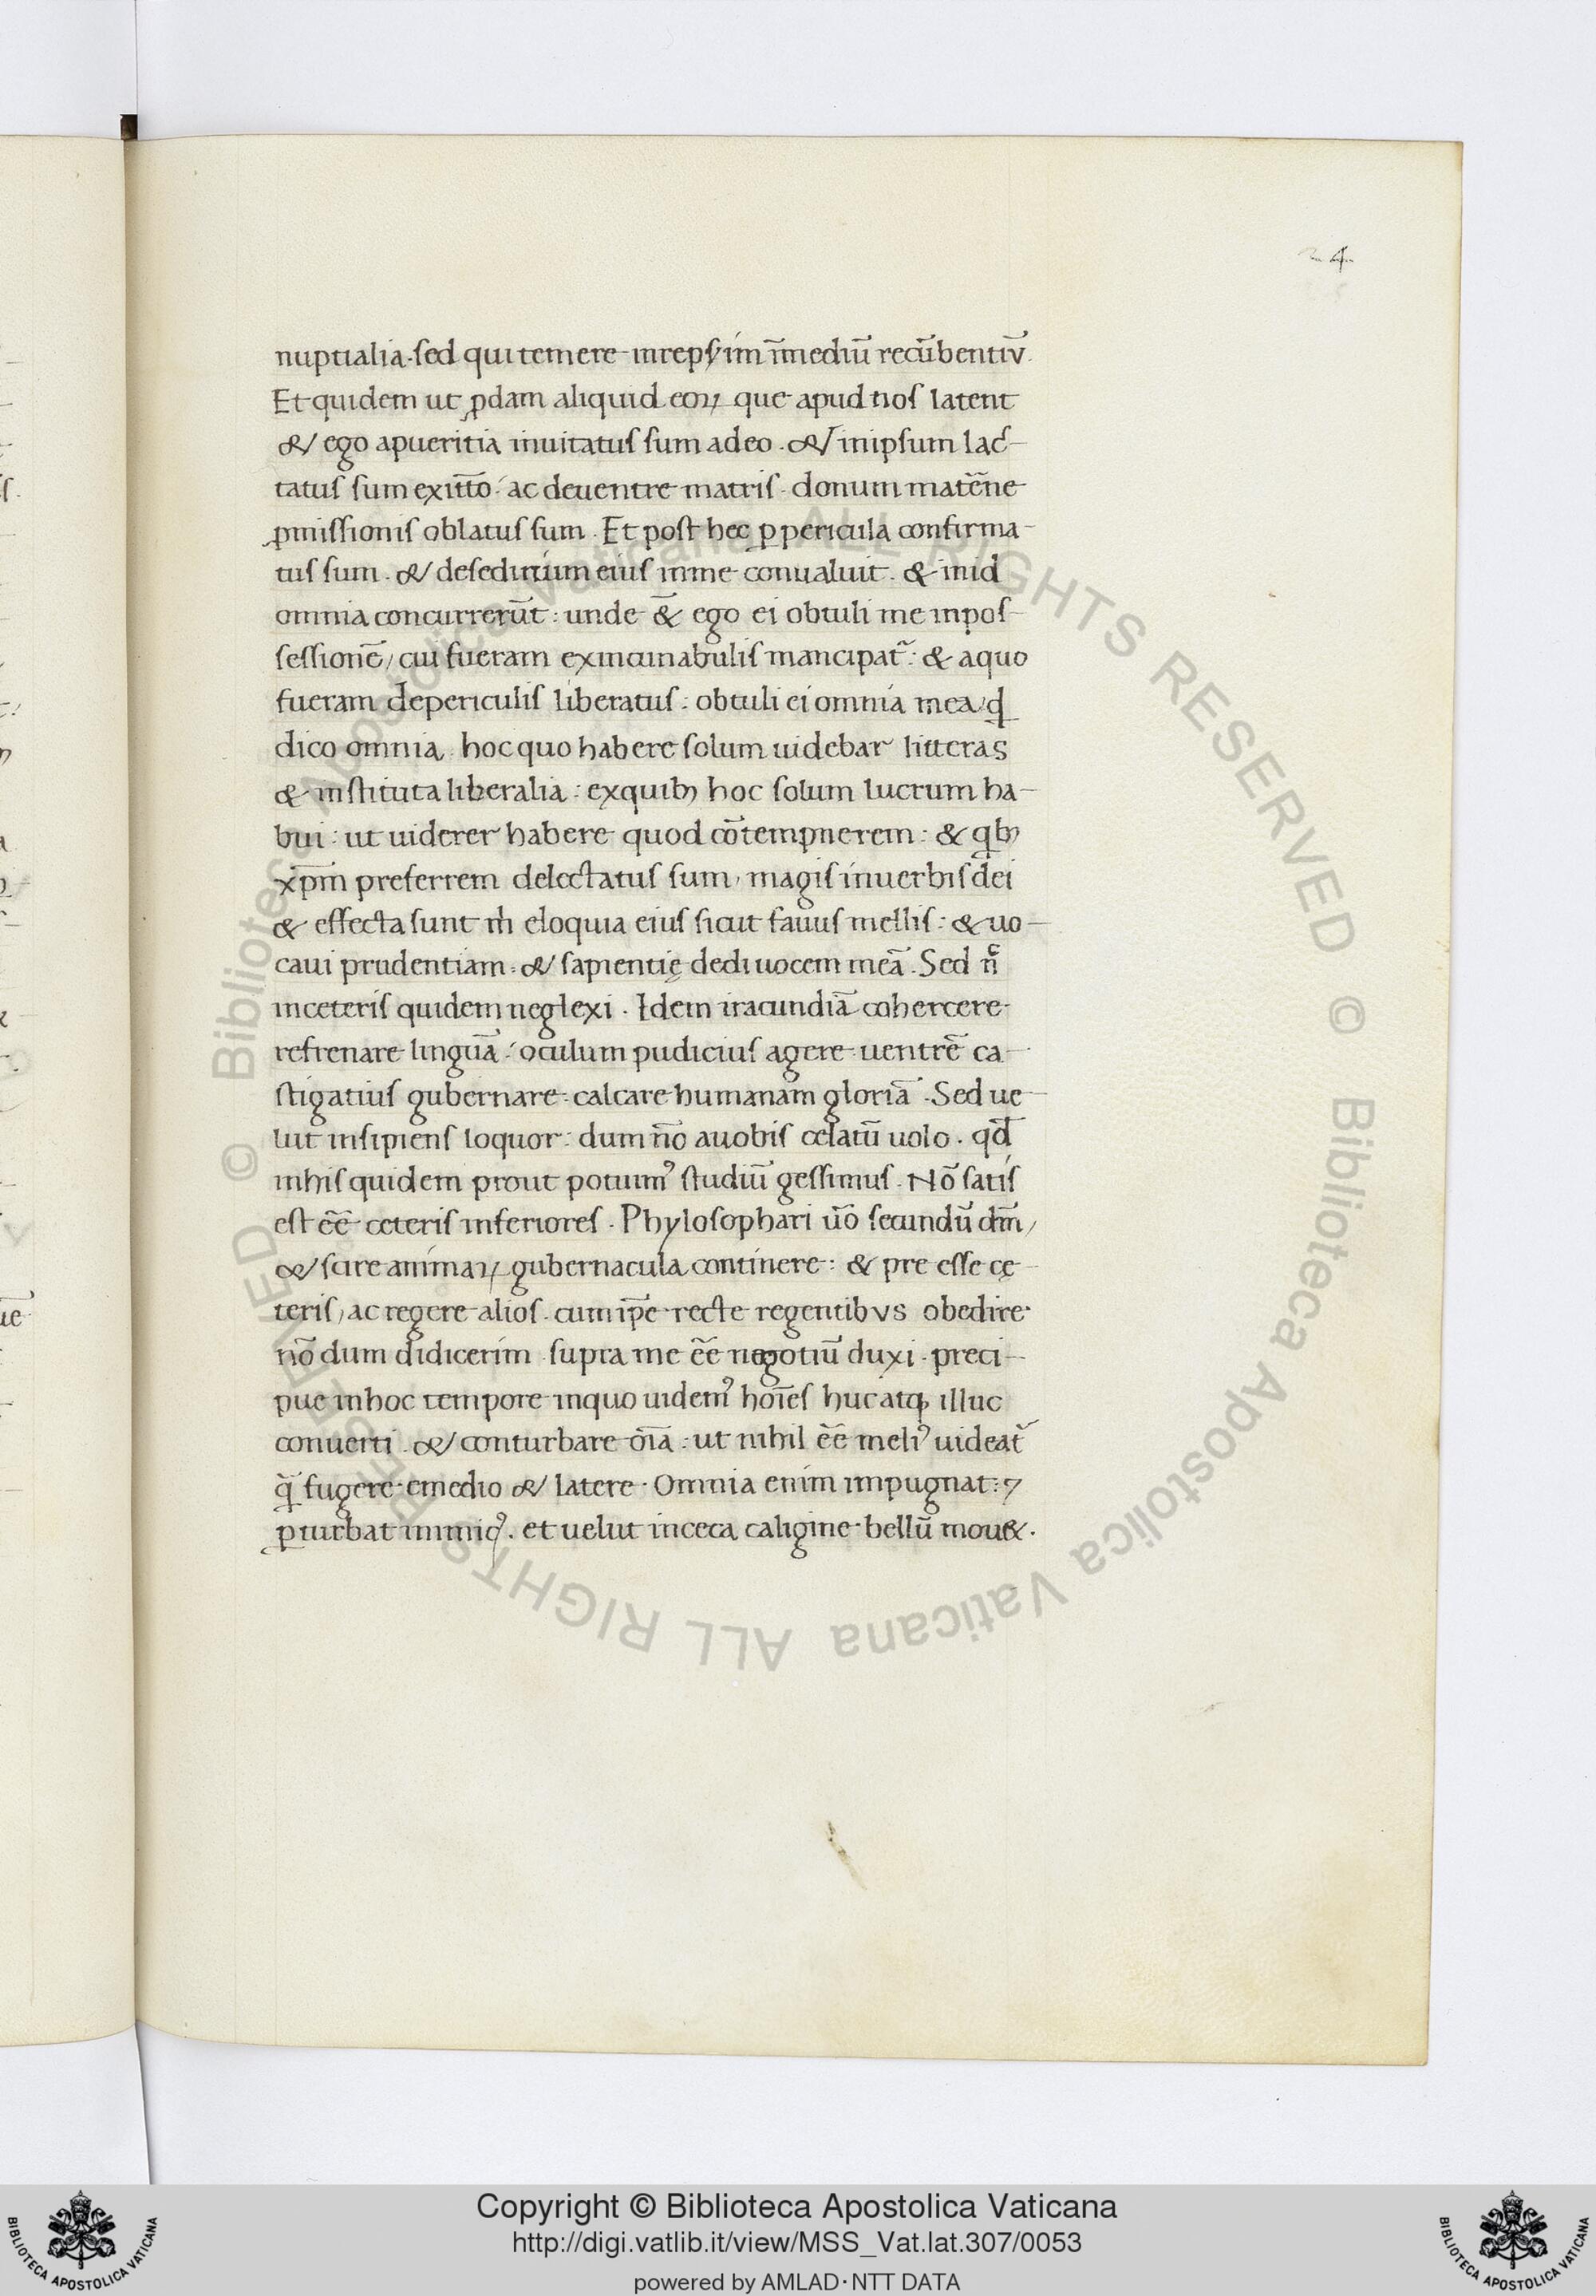 nuptialia. sed qui temere inrepsim ī mediū recūbentiū.
Et quidem ut ꝓdam aliquid eoꝝ que apud nos latent
& ego apueritia inuitatus sum adeo. & inipsum lac-
tatus sum exitio: ac deuentre matris. donum matēne
ꝓmissionis oblatus sum. Et post hec ꝑ pericula confirma-
tus sum. & desedirium eius inme conualuit. & inid
omnia concurrerūt: unde & ego ei obtuli me inpos-
sessionē, cui fueram exincunabulis mancipat᷑: & aquo
fueram depericulis liberatus: obtuli ei omnia mea, qd̄
dico omnia hoc quo habere solum uidebar litteras
& instituta liberalia: exquibꝫ hoc solum lucrum ha-
bui: ut uiderer habere quod cōtempnerem: & qbꝫ
xp̄m preferrem delectatus sum, magis inuerbis dei
& effecta sunt m̄ eloquia eius sicut fauus mellis: & uo-
caui prudentiam: & sapientię dedi uocem meā. Sed nͨ
inceteris quidem neglexi. Idem iracundiā cohercere
refrenare linguā: oculum pudicius agere uentrē ca-
stigatius gubernare: calcare humanam gloriā. Sed ue-
lut insipiens loquor: dum nō auobis celatū uolo. qd̄
inhis quidem prout potuimꝰ studiū gessimus. Nō satis
est eē ceteris inferiores. Phylosophari uō secundū dm̄,
& scire animaꝝ gubernacula continere: & pre esse cę-
teris, ac regere alios. cum ip̄e recte regentibus obedire
nō dum didicerim supra me eē negotiū duxi. preci-
pue inhoc tempore inquo uidemꝰ hoīes huc atqꝫ illuc
conuerti. & conturbare oīa: ut nihil eē meliꝰ uideat᷑
q̄ fugere emedio & latere. Omnia enim impugnat: ⁊
ꝑturbat inimicꝰ. et uelut inceca caligine bellū mou&.
Copyright © Biblioteca Apostolica Vaticana
http://digi.vatlib.it/view/MSS_Vat.lat.307/0053
powered by AMLAD·NTT DATA